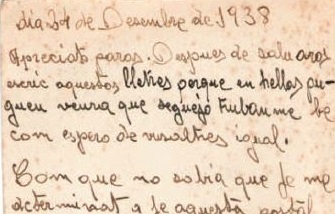 dia 24 de Desembre de 1938
Apreciats pares. Despues de saluaros
escric aquestos lletres porque en hellas pu-
gueu veura que segueſo trubanme be
com espero de vosaltres igual.
Com que no sabia que je me
determinat a fe aquesta postal